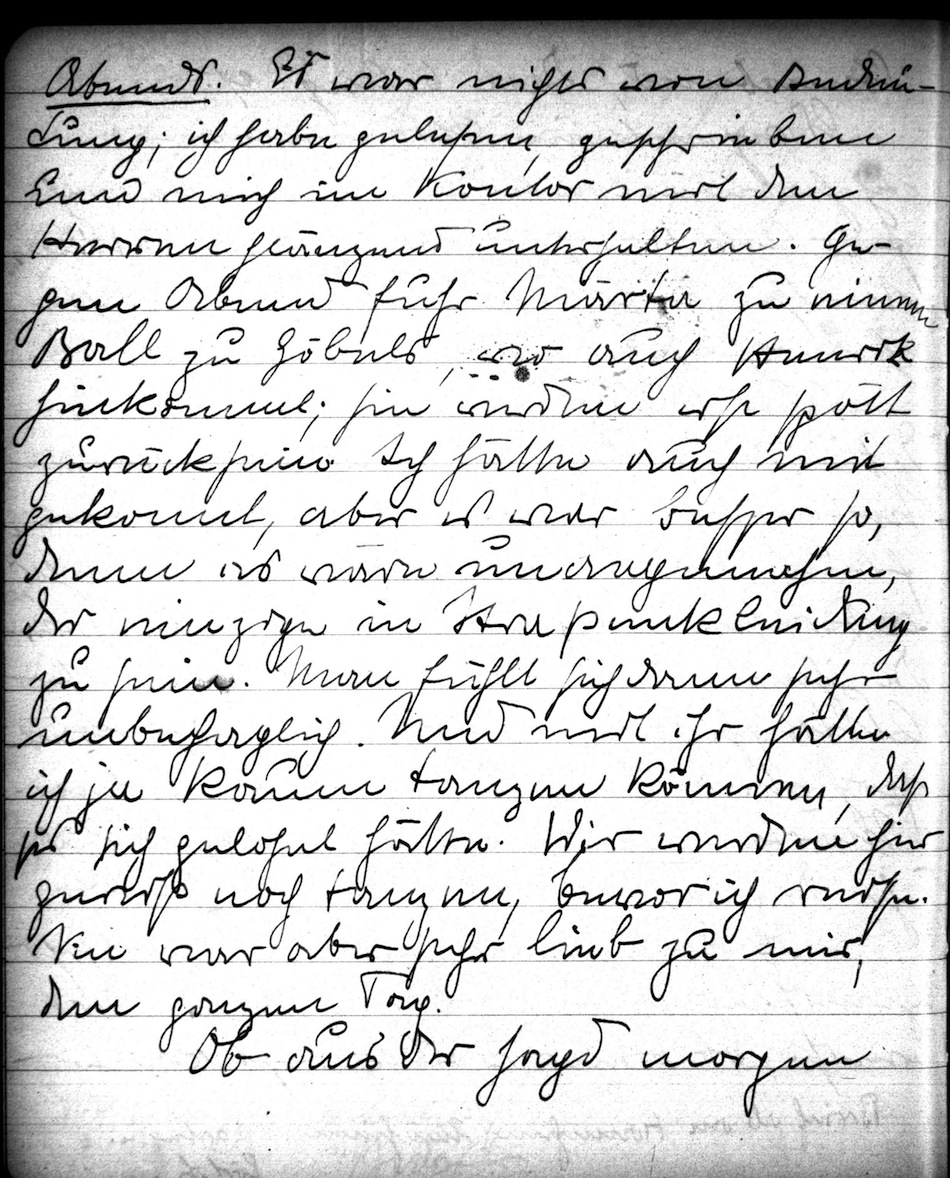 Abends. Es war nichts von Bedeu-
tung; ich habe gelesen, geschrieben
und mich im Kontor mit den
Herren glänzend unterhalten. Ge-
gen Abend fuhr Märta zu einem
Ball zu Göbels, wo auch Henrik
hinkommt; sie werden erst spät
zurück sein. Ich hätte auch mit
gekonnt, aber es war besser so,
denn es wäre unangenehm,
der einzige in Strapenkleidung
zu sein. Man fühlt sich dann sehr
unbehaglich. Und mit ihr hätte
ich ja kaum tanzen können, daß
es sich gelohnt hätte. Wir werden hier
gewiß noch tanzen, bevor ich reise.
Sie war aber sehr lieb zu mir,
den ganzen Tag.
Ob aus der Jagd morgen